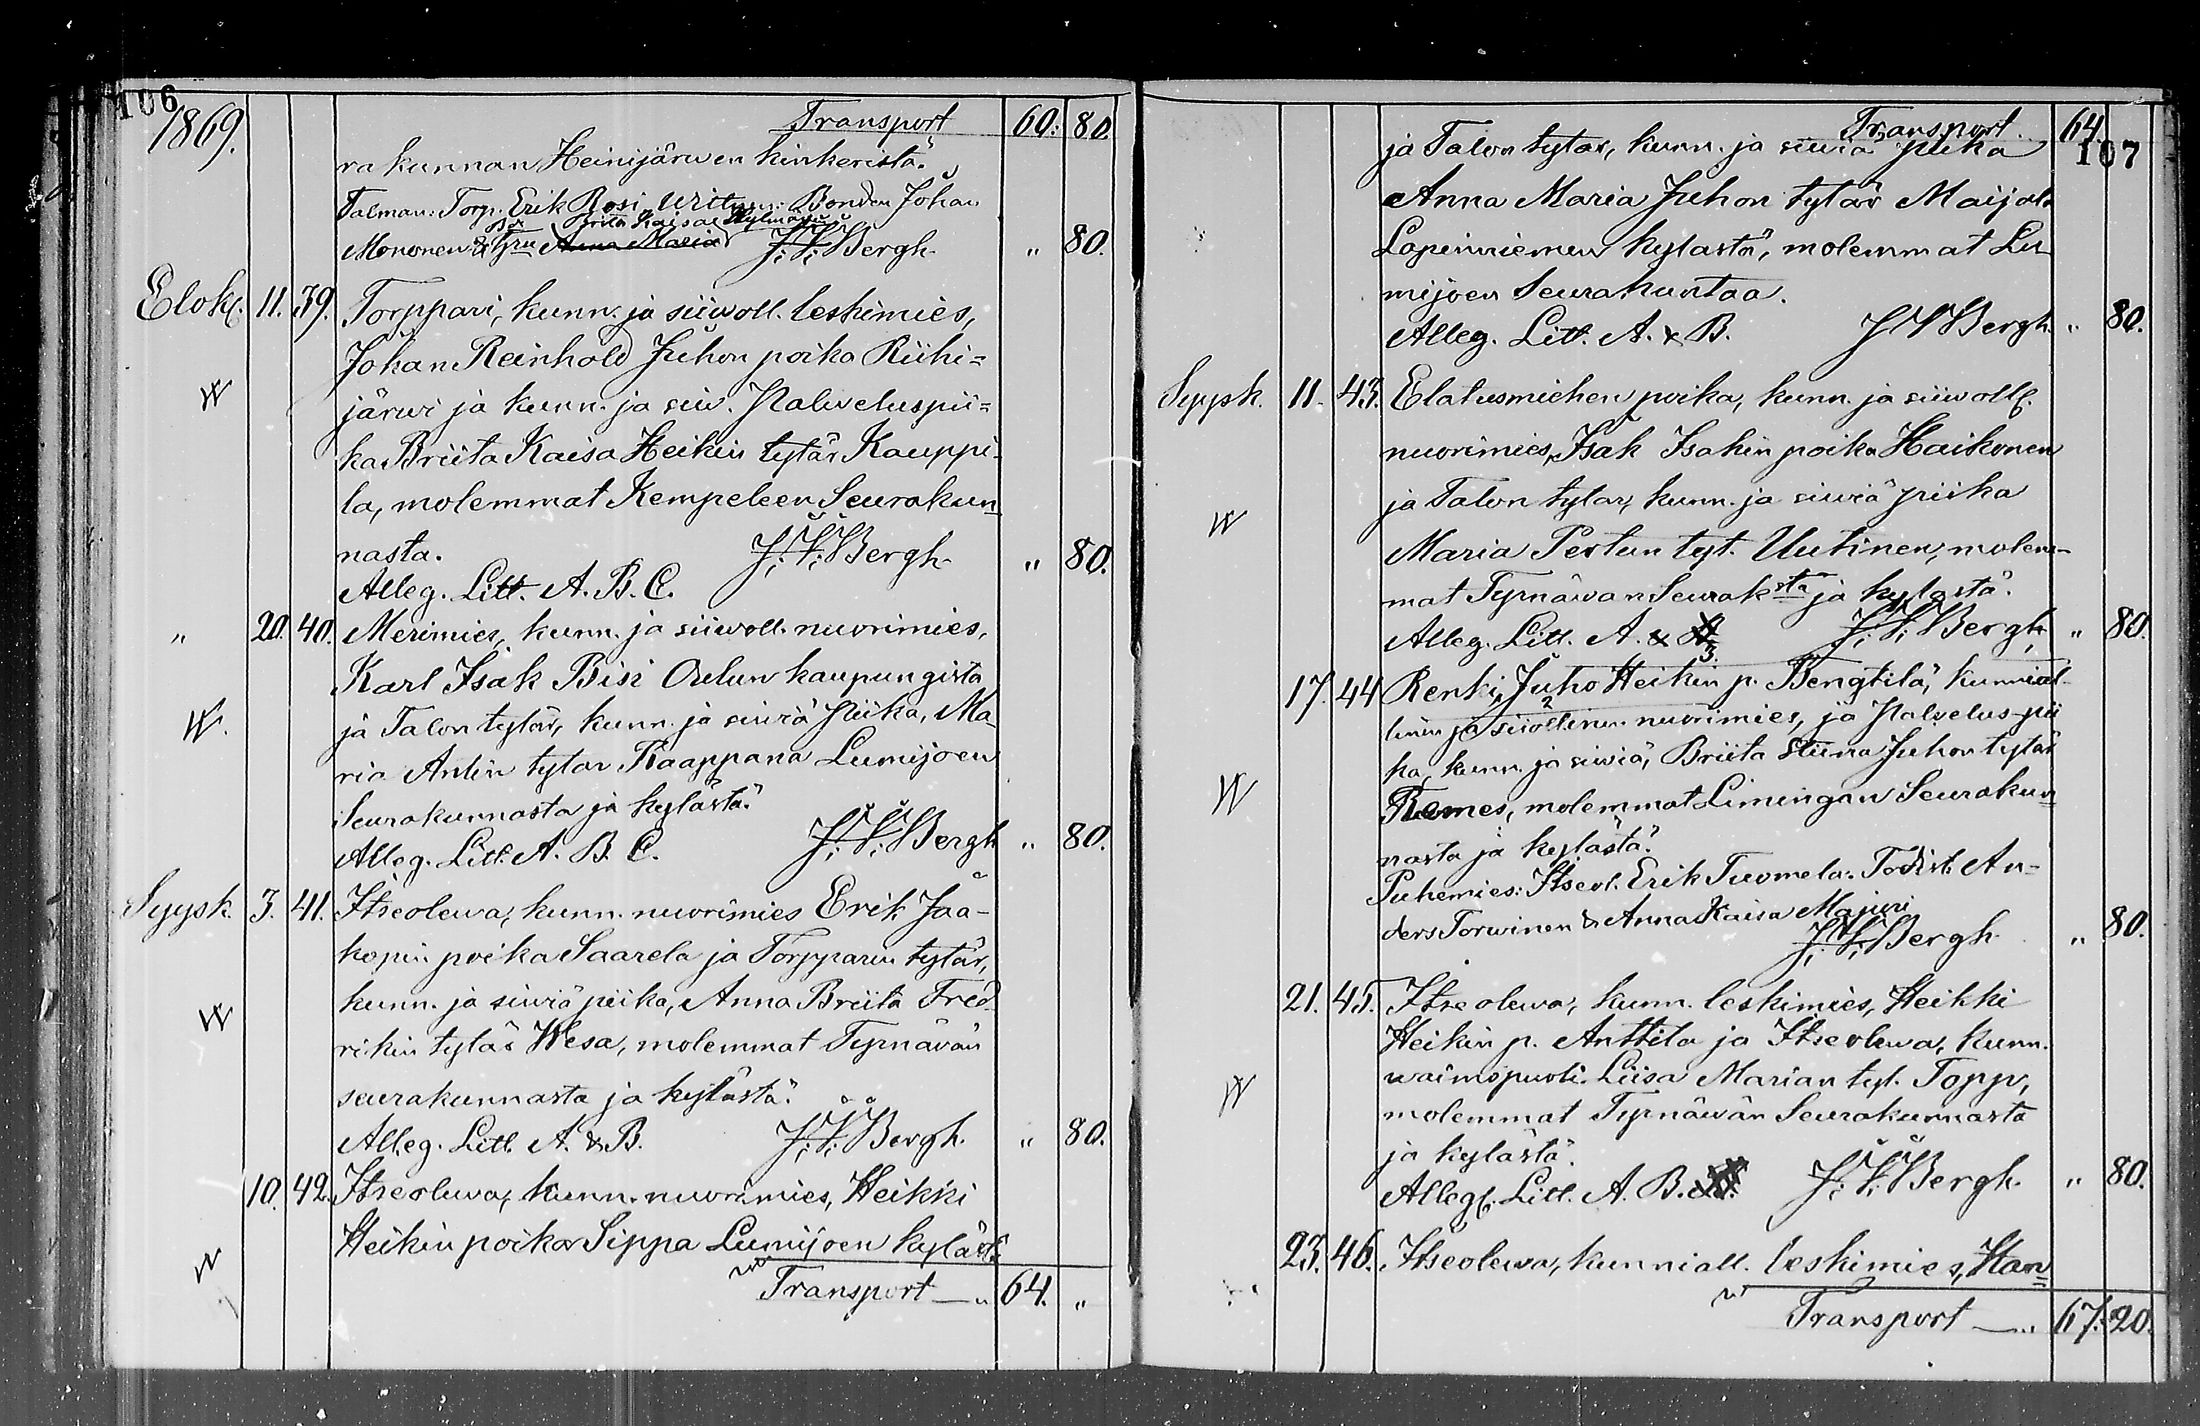 106
1869. Transport 60: 80.
rakunnan Heinijärwen kinkeristä.
Talman: Torp. Erik Rosi, Wittnen: Bonden Johan
Bd Brita Kaisa Hylmänen
Mononen & hru Anna Maria J. W. Bergh " 80.
Elok. 11. 39. Torppari, kunn. ja siiwoll. leskimies,
Johan Reinhold Juhon poika Riihi=
järwi ja kunn. ja siiw. Palweluspii=
ka Briita Kaisa Heikin tytär Kauppi-
la, molemmat Kempeleen Seurakun
nasta. J. W. Bergh " 80.
Alleg. Litt. A. B. C.
" 20. 40. Merimies, kunn. ja siiwoll. nuorimies,
Karl Isak Bisi Oulun kaupungista
ja Talon tytär, kunn. ja siwiä Piika, Ma-
ria Antin tytar Kaappana Lumijoen
Seurakunnasta ja kylästä.
Alleg. Litt. A. B. C. J. W. Bergh " 80.
Syysk. 3. 41. Itseolewa, kunn. nuorimies Erik Jaa-
kopin poika Saarela ja Torpparin tytär,
kunn. ja siwiä piika, Anna Briita Fred-
rikin tytär Wesa, molemmat Tyrnävän
seurakunnasta ja kylästä.
Alleg. Litt. A. & B. J. W. Bergh. " 80.
10. 42. Itseolewa, kunn. nuorimies, Heikki
Heikin poika Sippa Lumijoen kyläst.
Transport — " 64. "
107
Transport 64.
ja Talon tytar, kunn. ja siwiä piika
Anna Maria Juhon tytär Maijala
Lapinniemen kylästä, molemmat Lu-
mijoen Seurakuntaa.
Alleg. Litt. A. & B. J W Bergh. " 80.
Syysk. 11. 43. Elatusmiehen poika, kunn. ja siiwoll.
nuorimies, Isak Isakin poika Haikonen
ja Talon tytar, kunn. ja siwiä piika
Maria Pertun tyt. Uutinen, molem-
mat Tyrnäwän Seuraksta ja kylästä.
Alleg. Litt. A. & B J. W. Bergh, " 80.
17. 44 Renki, Juho Heikin p. Bengtilä, kunnial-
linen ja siiollinen nuorimies, ja Palvelus-pii
ka, kunn. ja siwiä, Briita Stiina Juhon tytär
Rames, molemmat Limingan Seurakun
nasta ja kylästä.
Puhemies: Itseol. Erik Tuomela. Todist. An-
ders Torwinen & Anna Kaisa Majuri
J. W. Bergh. " 80.
21. 45. Itseolewa, kunn. leskimies, Heikki
Heikin p. Anttila ja Itseolewa, kunn.
waimopuoli Liisa Marian tyt. Topp,
molemmat Tyrnäwän Seurakunnasta
ja kylästä.
Alleg. Litt. A. B. J. W. Bergh " 80.
23. 46. Itseolewa, kunniall. leskimies, Han=
Transport — " 67. 20.